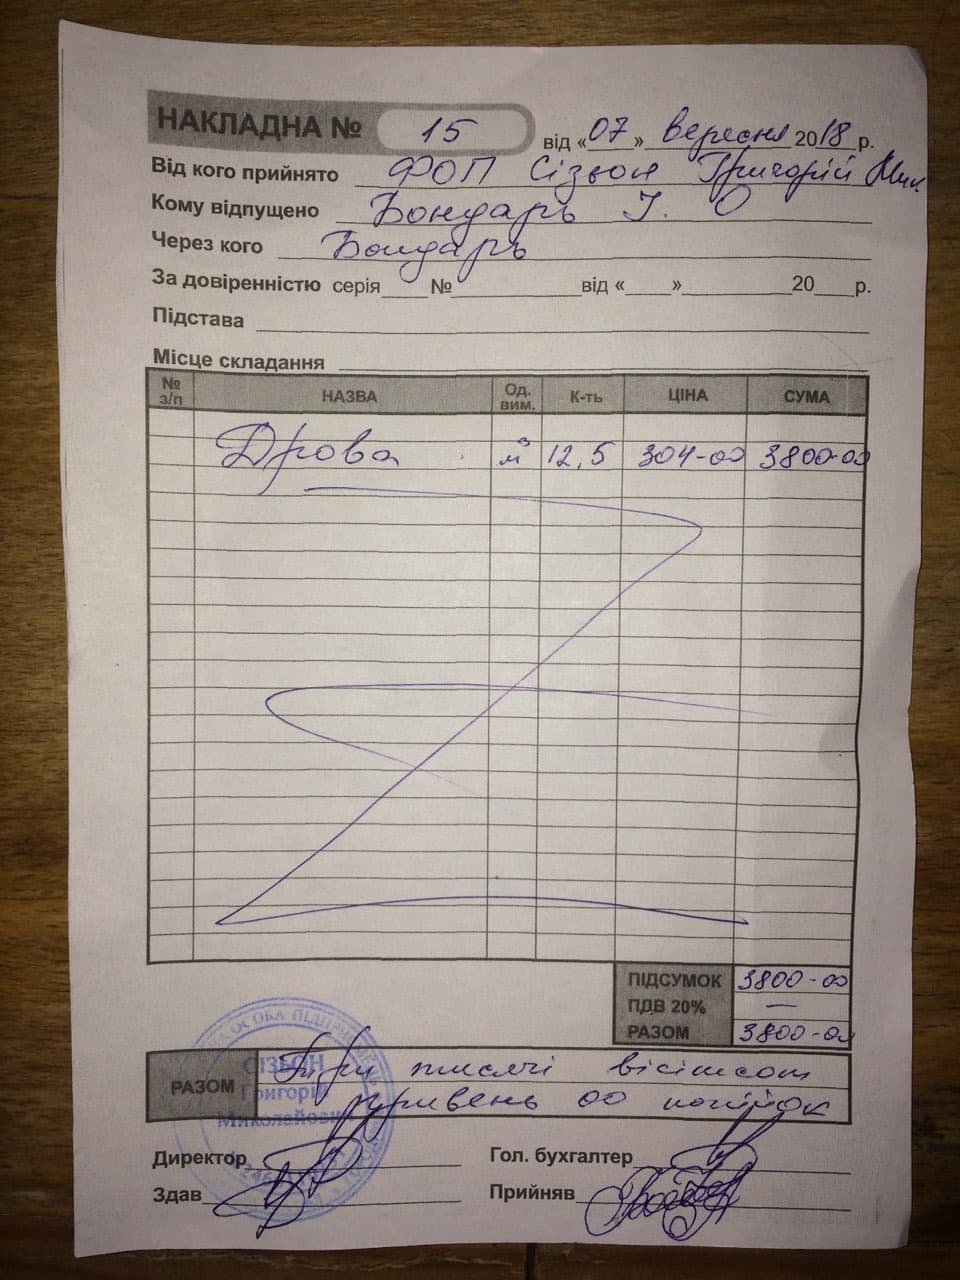 НАКЛАДНА № 15 від «07» вересня 2018 р.
Від кого прийнято ФОП Сізьон Григорій Мик.
Кому відпущено Бондарь І. О
Через кого Бондарь
За довіренністю серія____ №____________від «____»__________20____р.
Підстава
Місце складання
№ з/п НАЗВА Од. вим. К-ть ЦІНА СУМА
Дрова м³ 12,5 304-00 3800-00
ПІДСУМОК 3800-00
ПДВ 20% —
РАЗОМ 3800-00
РАЗОМ Три тисячі вісімсот
гривень 00 копійок
ОСОБА ПІДПРИЄМЕЦЬ
СІЗЬОН
Григорій
Миколайович
Директор Гол. бухгалтер
Здав Прийняв